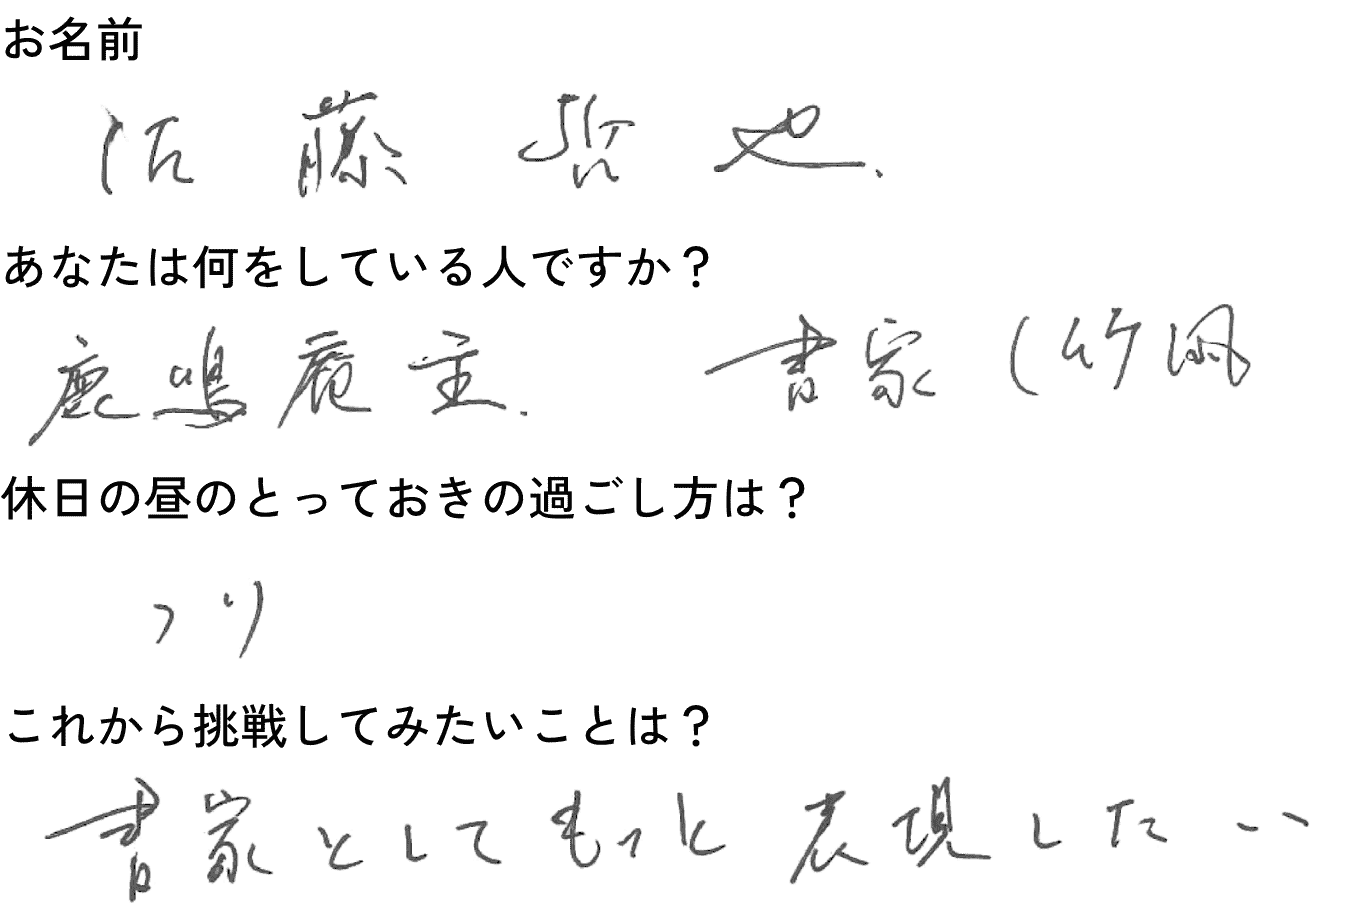 お名前
佐藤 哲也.
あなたは何をしている人ですか？
鹿鳴庵主. 書家 (竹
休日の昼のとっておきの過ごし方は？
つり
これから挑戦してみたいことは？
書家としてもっと表現したい